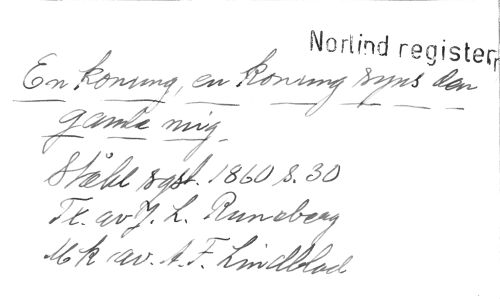 Norlind register
En konung, en konung syns den
gamla mig
Ståhl sgst. 1860 s. 30
Tx. av J. L. Runeberg
Mk av. A. F. Lindblad